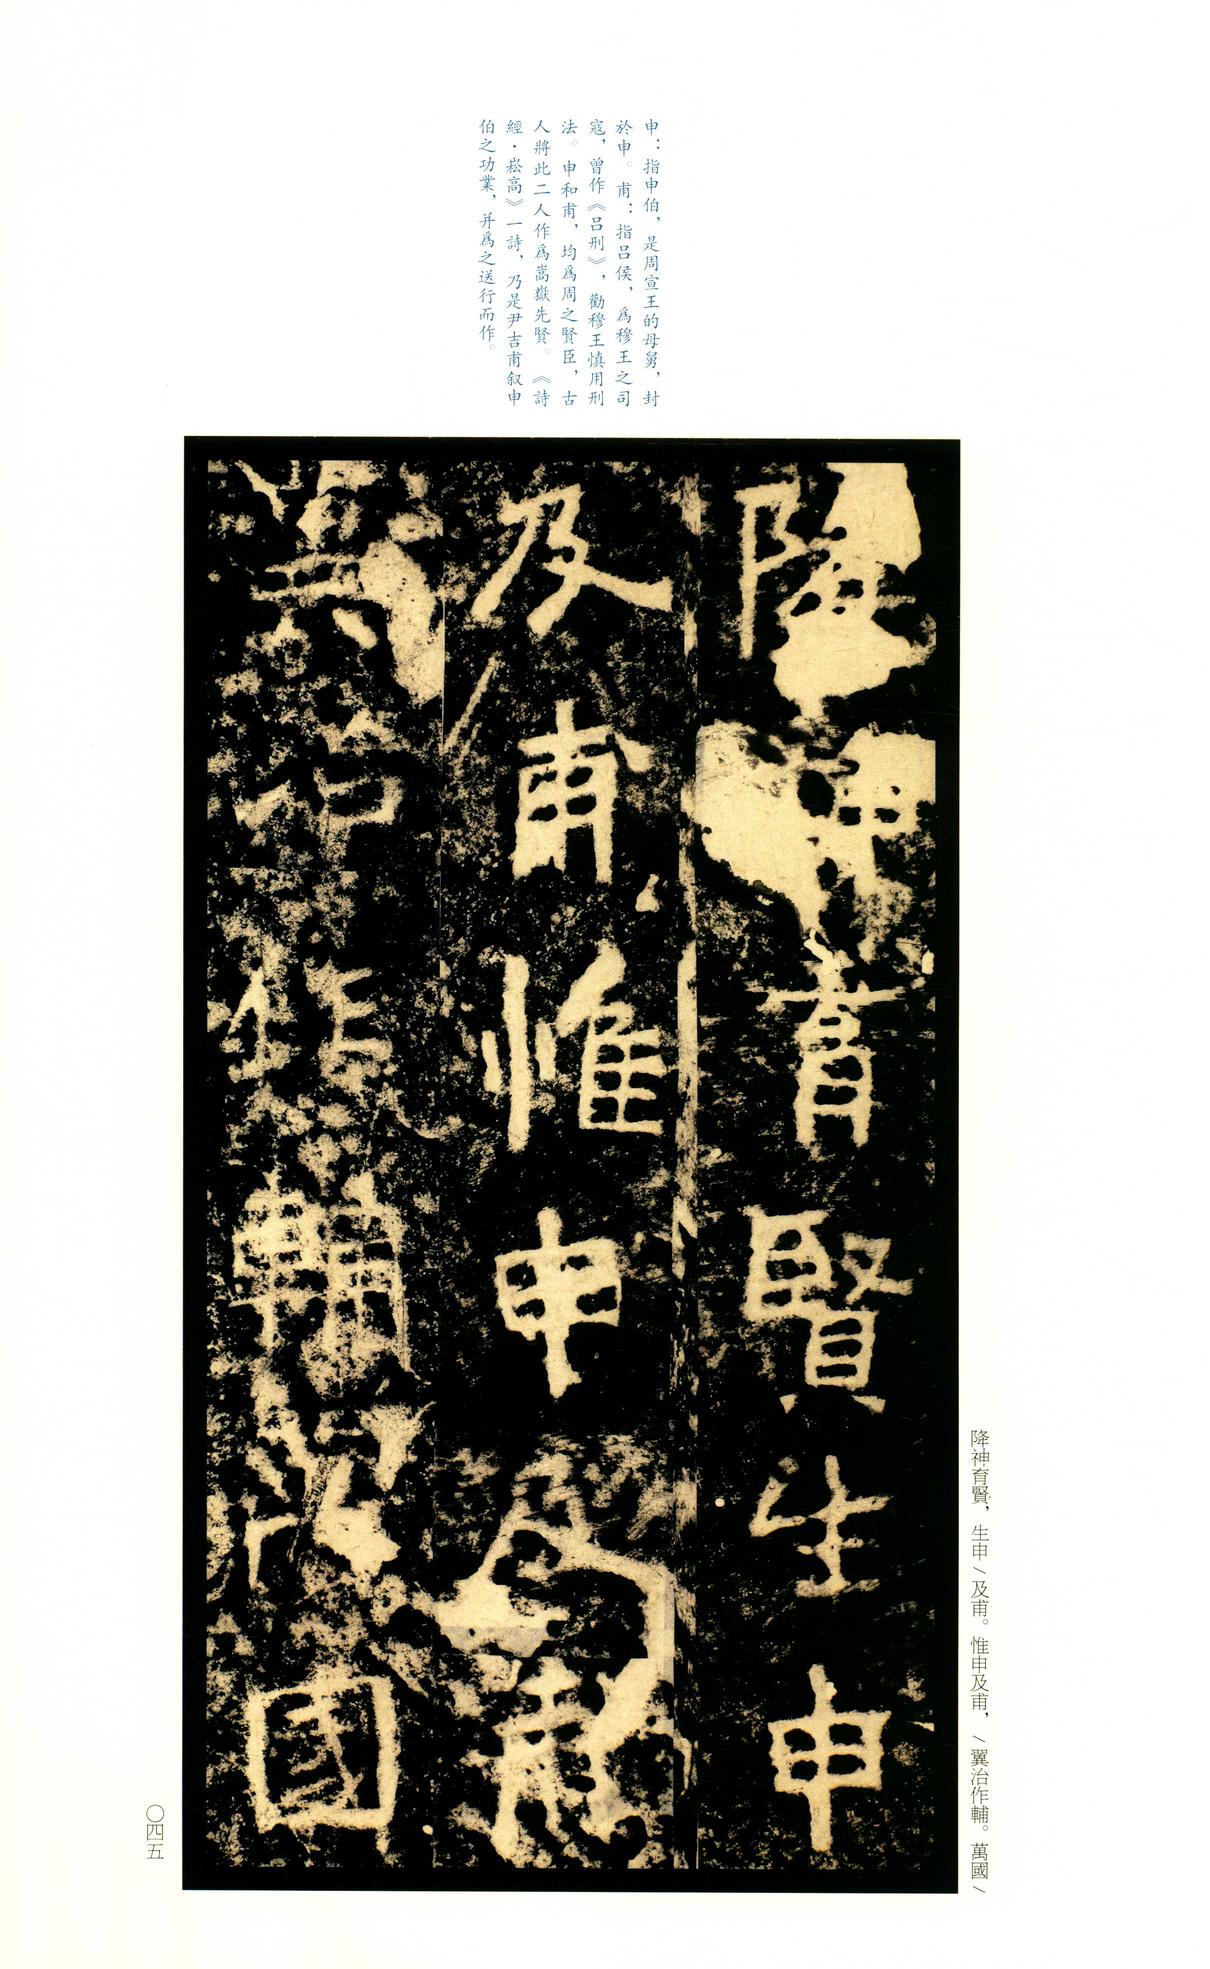 申：指申伯，是周宣王的母舅，封
於申。甫：指吕侯，爲穆王之司
寇，曾作《吕刑》，勸穆王慎用刑
法。申和甫，均爲周之賢臣，古
人將此二人作爲嵩嶽先賢。《詩
經·崧高》一詩，乃是尹吉甫叙申
伯之功業，并爲之送行而作。
降神育賢生申
及甫惟申及甫
翼治作輔萬國
降神育賢，生申／及甫。惟申及甫，／翼治作輔。萬國／
〇四五